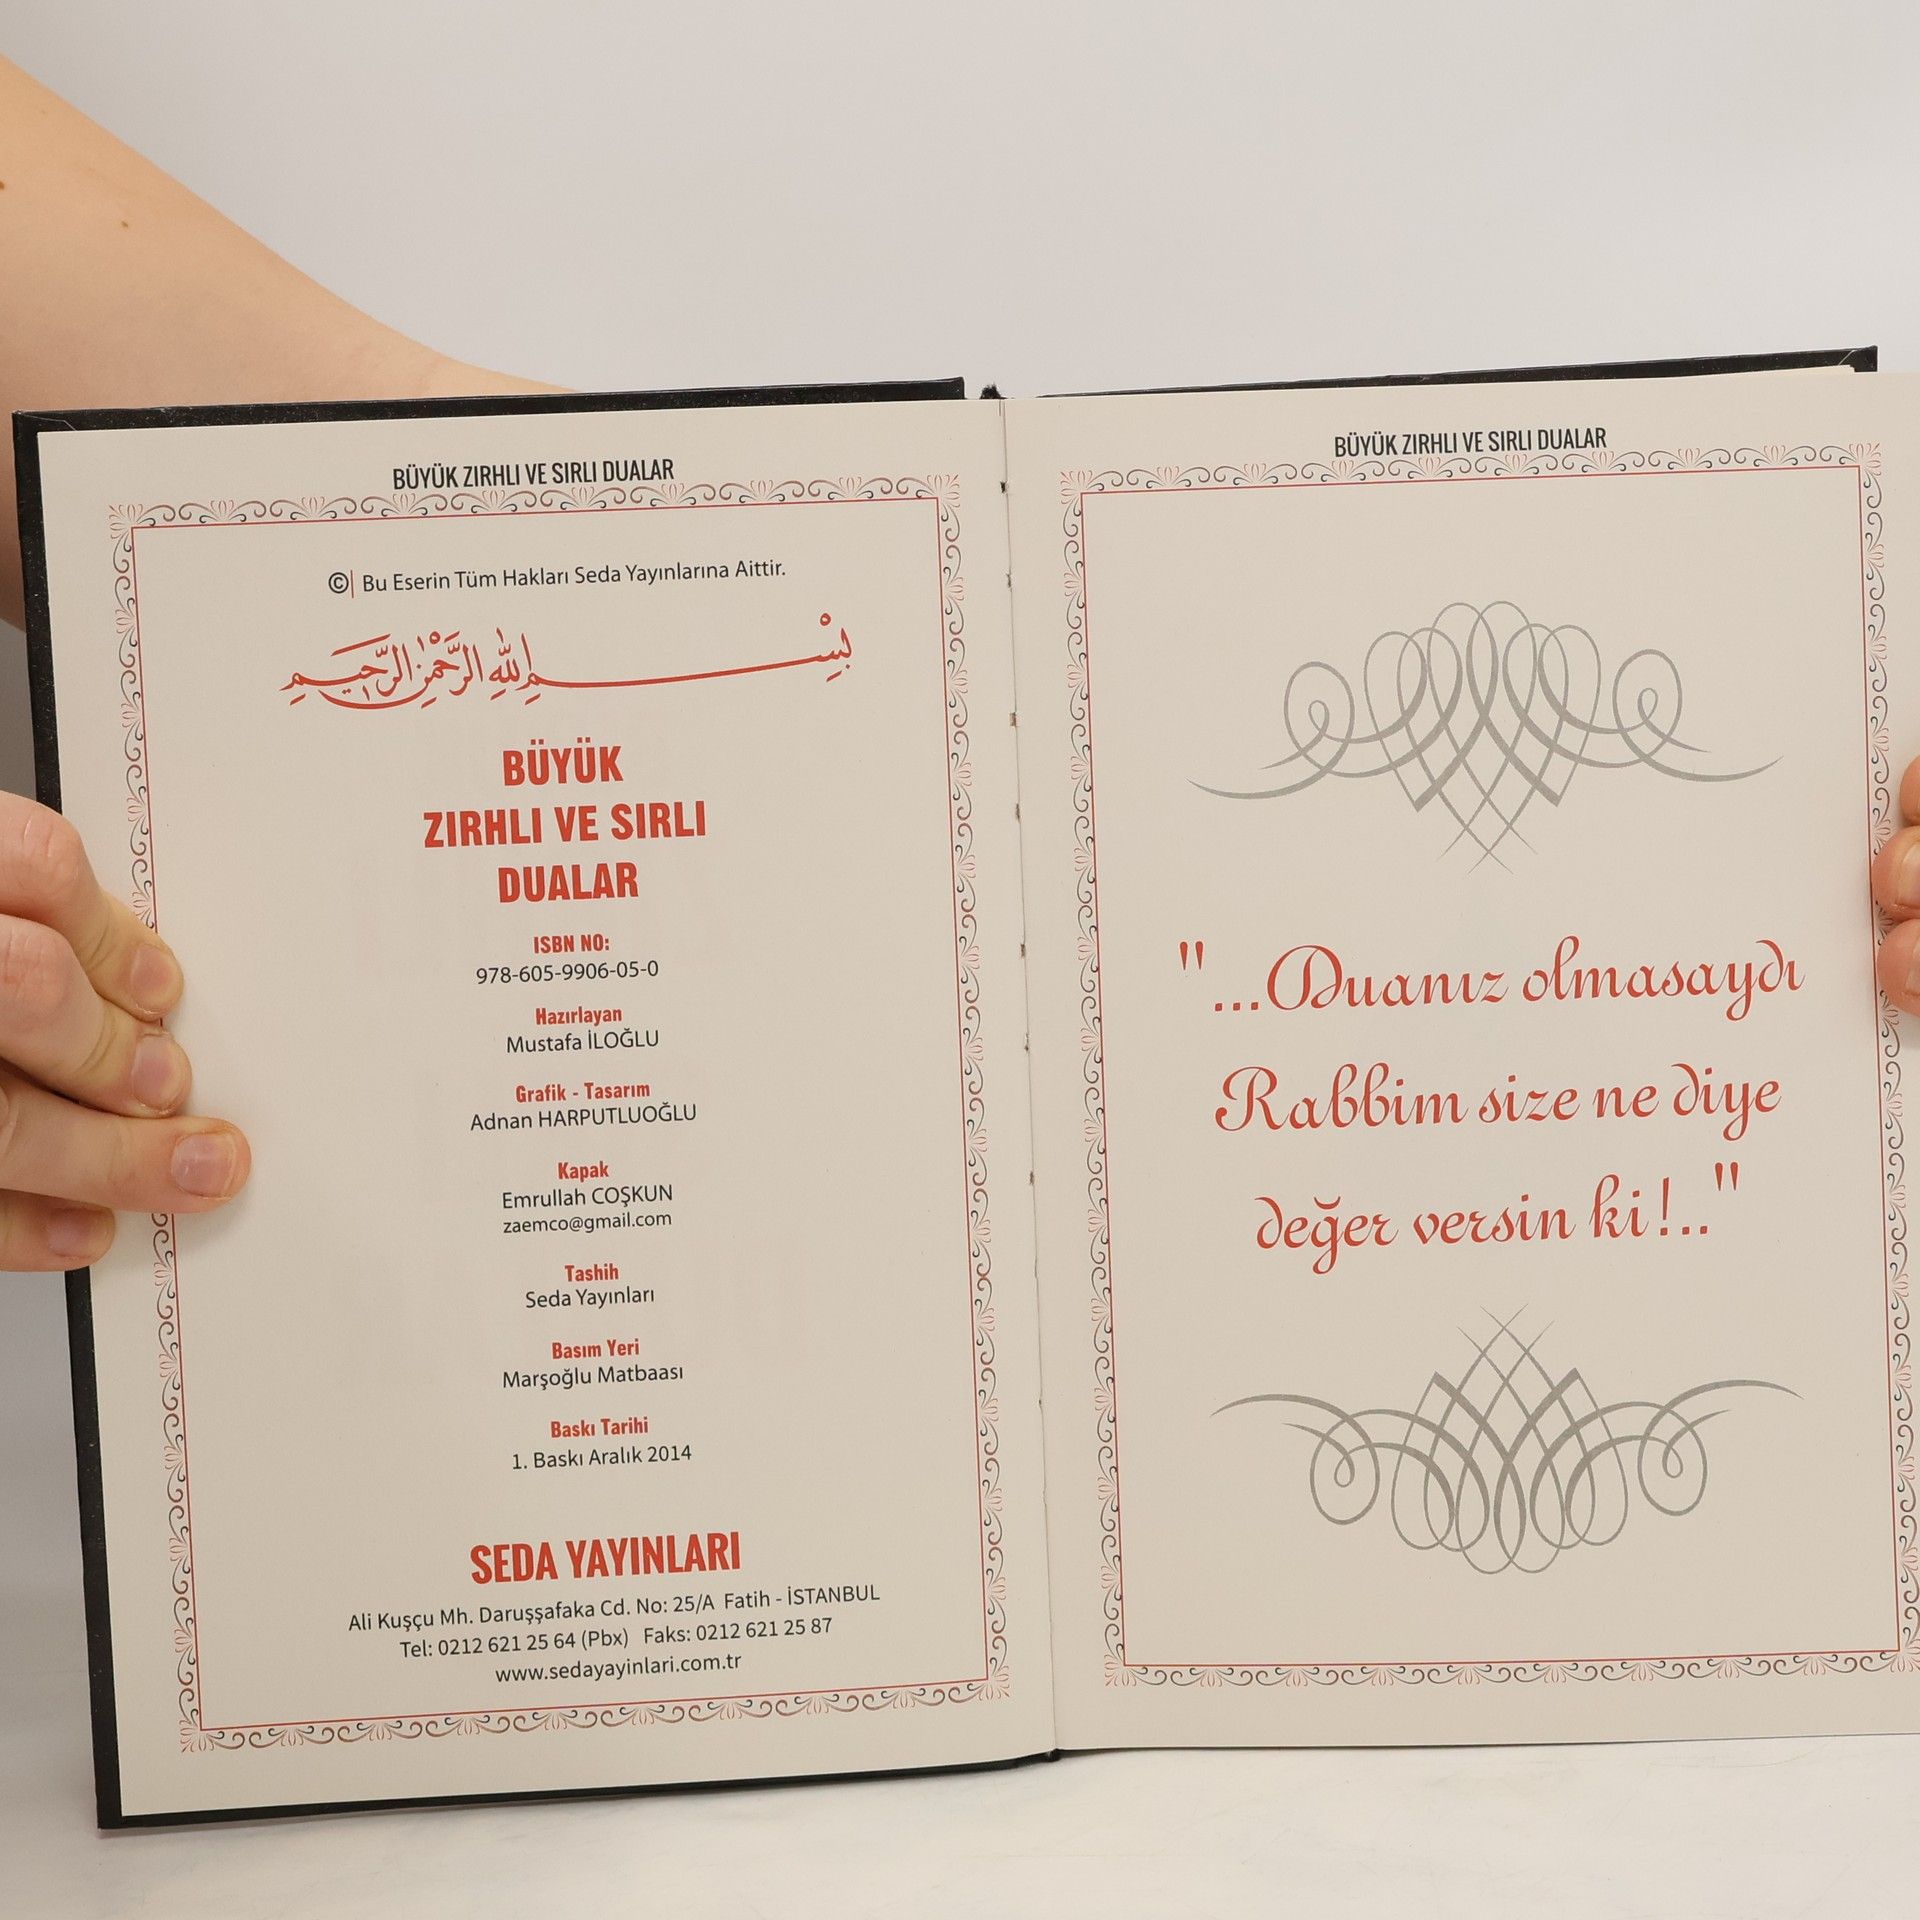 BÜYÜK ZIRHLI VE SIRLI DUALAR
©| Bu Eserin Tüm Hakları Seda Yayınlarına Aittir.
بِسْمِ اللهِ الرَّحْمٰنِ الرَّحِيمِ
BÜYÜK
ZIRHLI VE SIRLI
DUALAR
ISBN NO:
978-605-9906-05-0
Hazırlayan
Mustafa İLOĞLU
Grafik - Tasarım
Adnan HARPUTLUOĞLU
Kapak
Emrullah COŞKUN
zaemco@gmail.com
Tashih
Seda Yayınları
Basım Yeri
Marşoğlu Matbaası
Baskı Tarihi
1. Baskı Aralık 2014
SEDA YAYINLARI
Ali Kuşçu Mh. Daruşşafaka Cd. No: 25/A Fatih - İSTANBUL
Tel: 0212 621 25 64 (Pbx) Faks: 0212 621 25 87
www.sedayayinlari.com.tr
BÜYÜK ZIRHLI VE SIRLI DUALAR
"...Duanız olmasaydı
Rabbim size ne diye
değer versin ki!.."